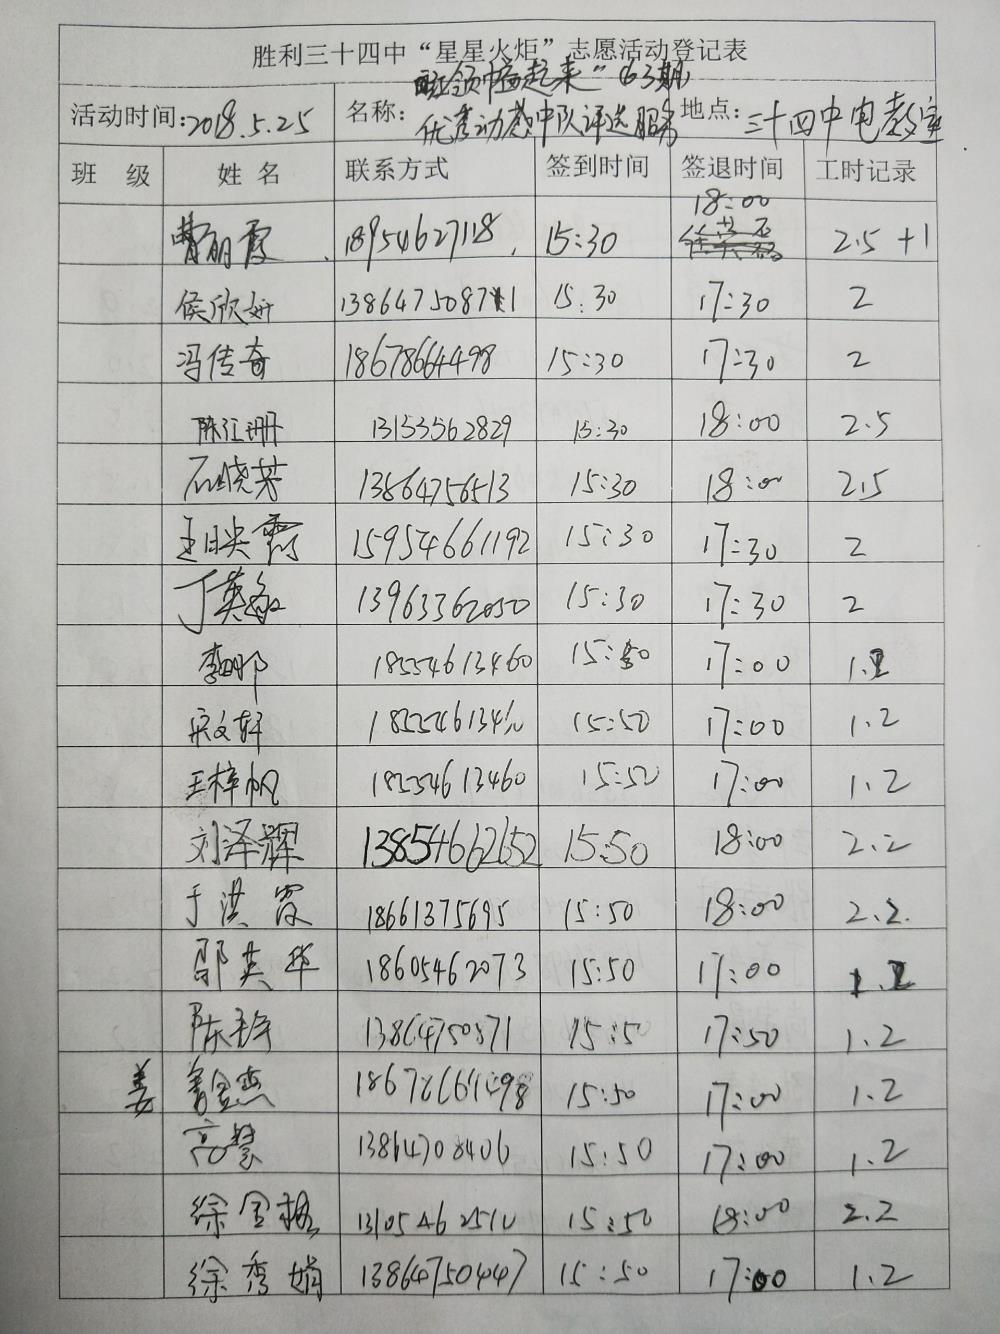 胜利三十四中“星星火炬”志愿活动登记表
活动时间:2018.5.25 名称: 起来”63期 优秀动感中队评选服务 地点: 三十四中电教室
班 级 姓 名 联系方式 签到时间 签退时间 工时记录
曹丽霞 18954627118 15:30 18:00 2.5+1
侯欣妍 15:30 17:30 2
冯传奇 18678664498 15:30 17:30 2
陈江珊 13153562829 15:30 18:00 2.5
石晓芳 13864756513 15:30 18:00 2.5
王映霞 15954661192 15:30 17:30 2
丁英敏 13963362050 15:30 17:30 2
李 18554613460 15:50 17:00 1.2
宋文轩 15:50 17:00 1.2
王梓帆 18554613460 15:50 17:00 1.2
刘泽辉 13854662652 15:50 18:00 2.2
于洪霞 18661375695 15:50 18:00 2.2
邵英华 18605462073 15:50 17:00 1.2
陈 13864750871 15:50 17:50 1.2
姜 15:50 17:00 1.2
高慧 13864708406 15:50 17:00 1.2
徐金 15:50 18:00 2.2
徐秀娟 13864750447 15:50 17:00 1.2